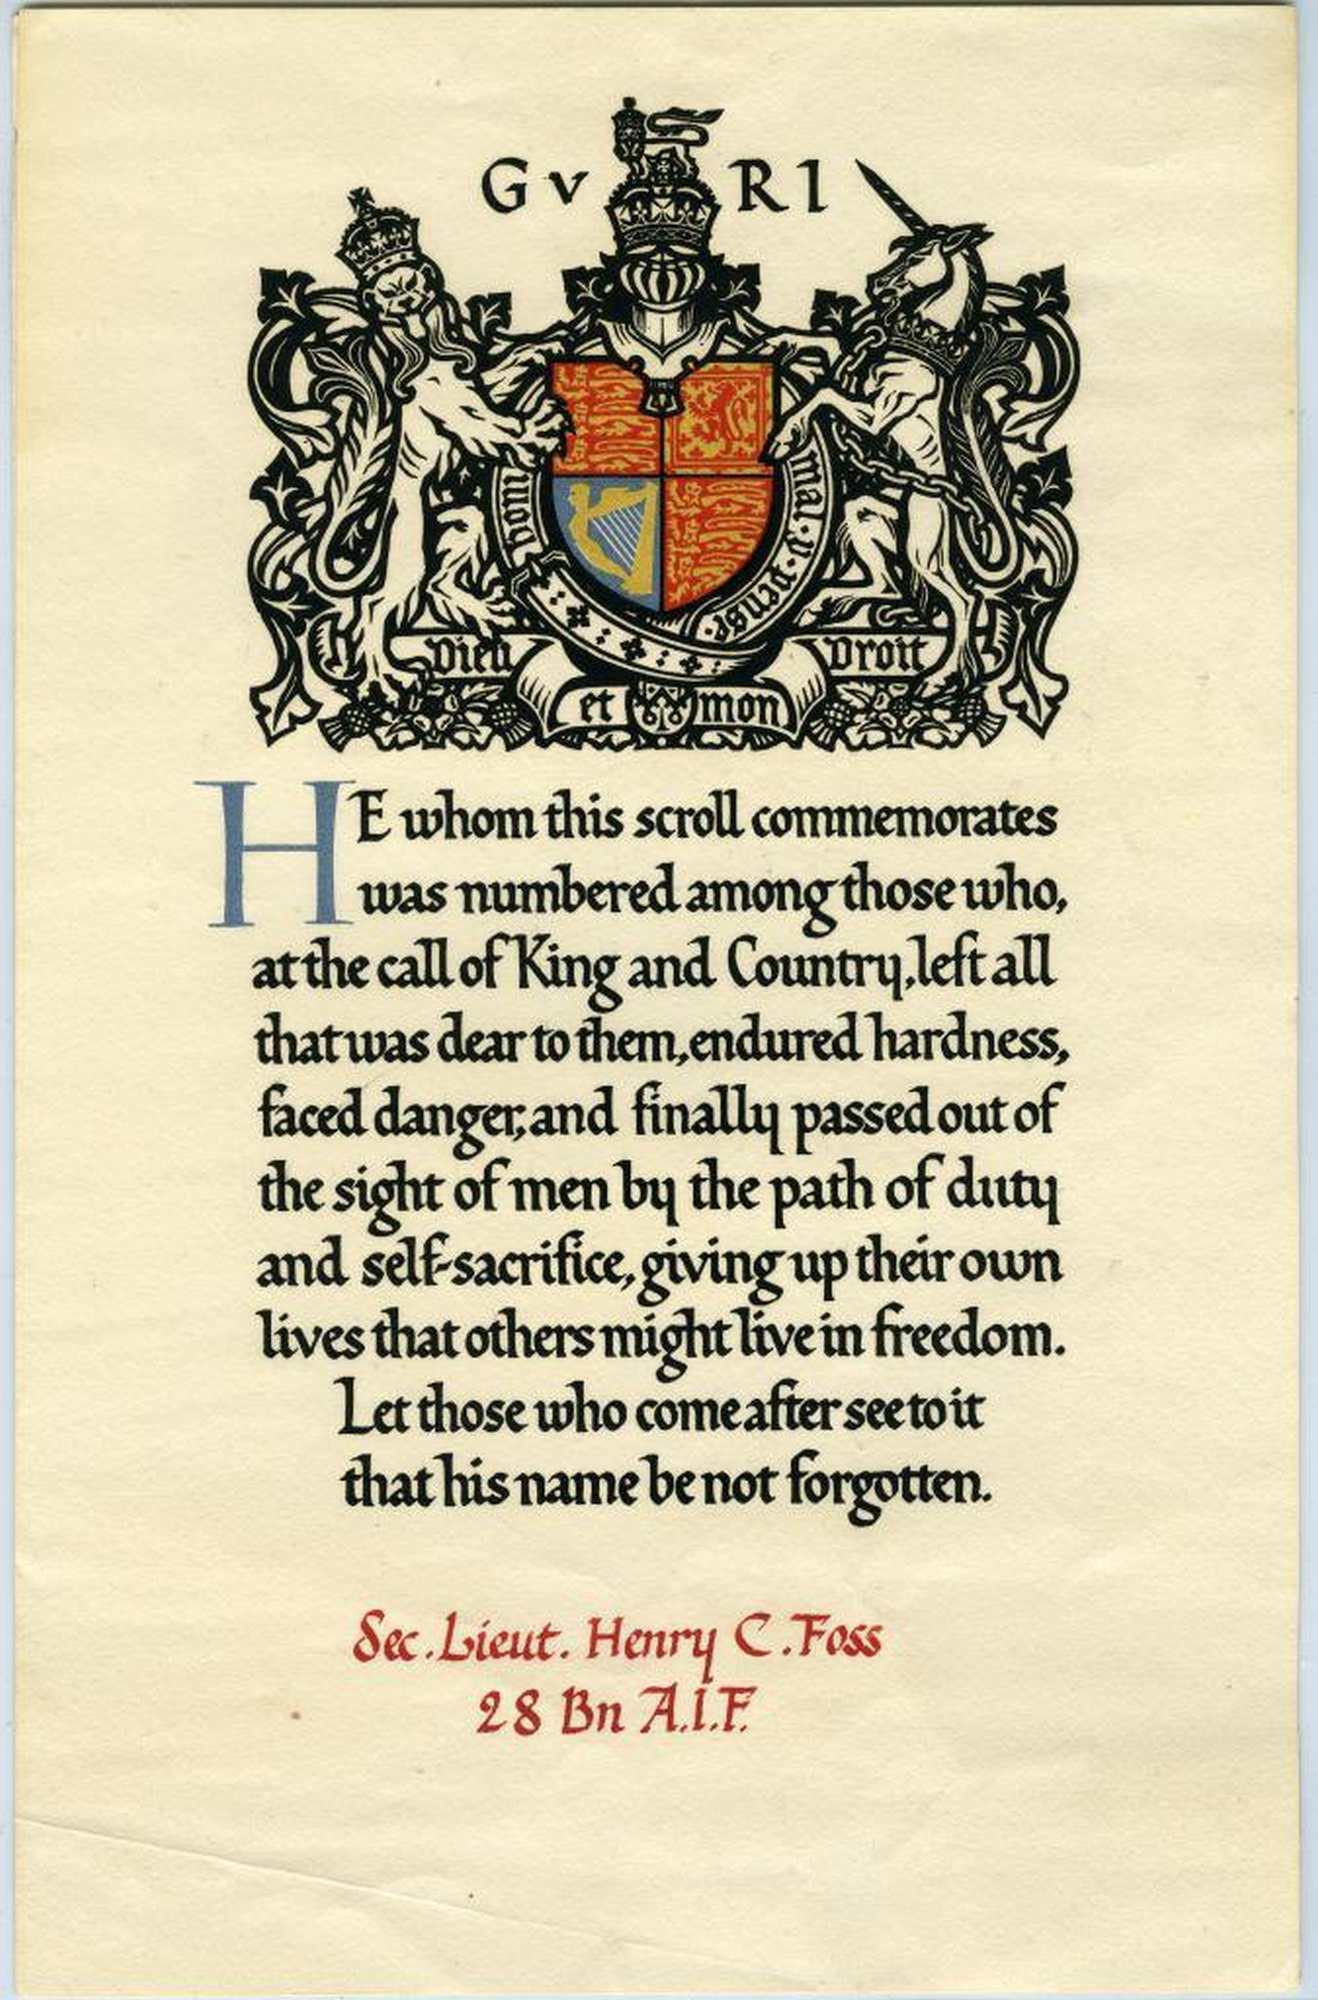 G V R I
honi
mal·y·pense·
Dieu
Droit
et mon
HE whom this scroll commemorates
was numbered among those who,
at the call of King and Country, left all
that was dear to them, endured hardness,
faced danger, and finally passed out of
the sight of men by the path of duty
and self-sacrifice, giving up their own
lives that others might live in freedom.
Let those who come after see to it
that his name be not forgotten.
Sec. Lieut. Henry C. Foss
28 Bn A.I.F.